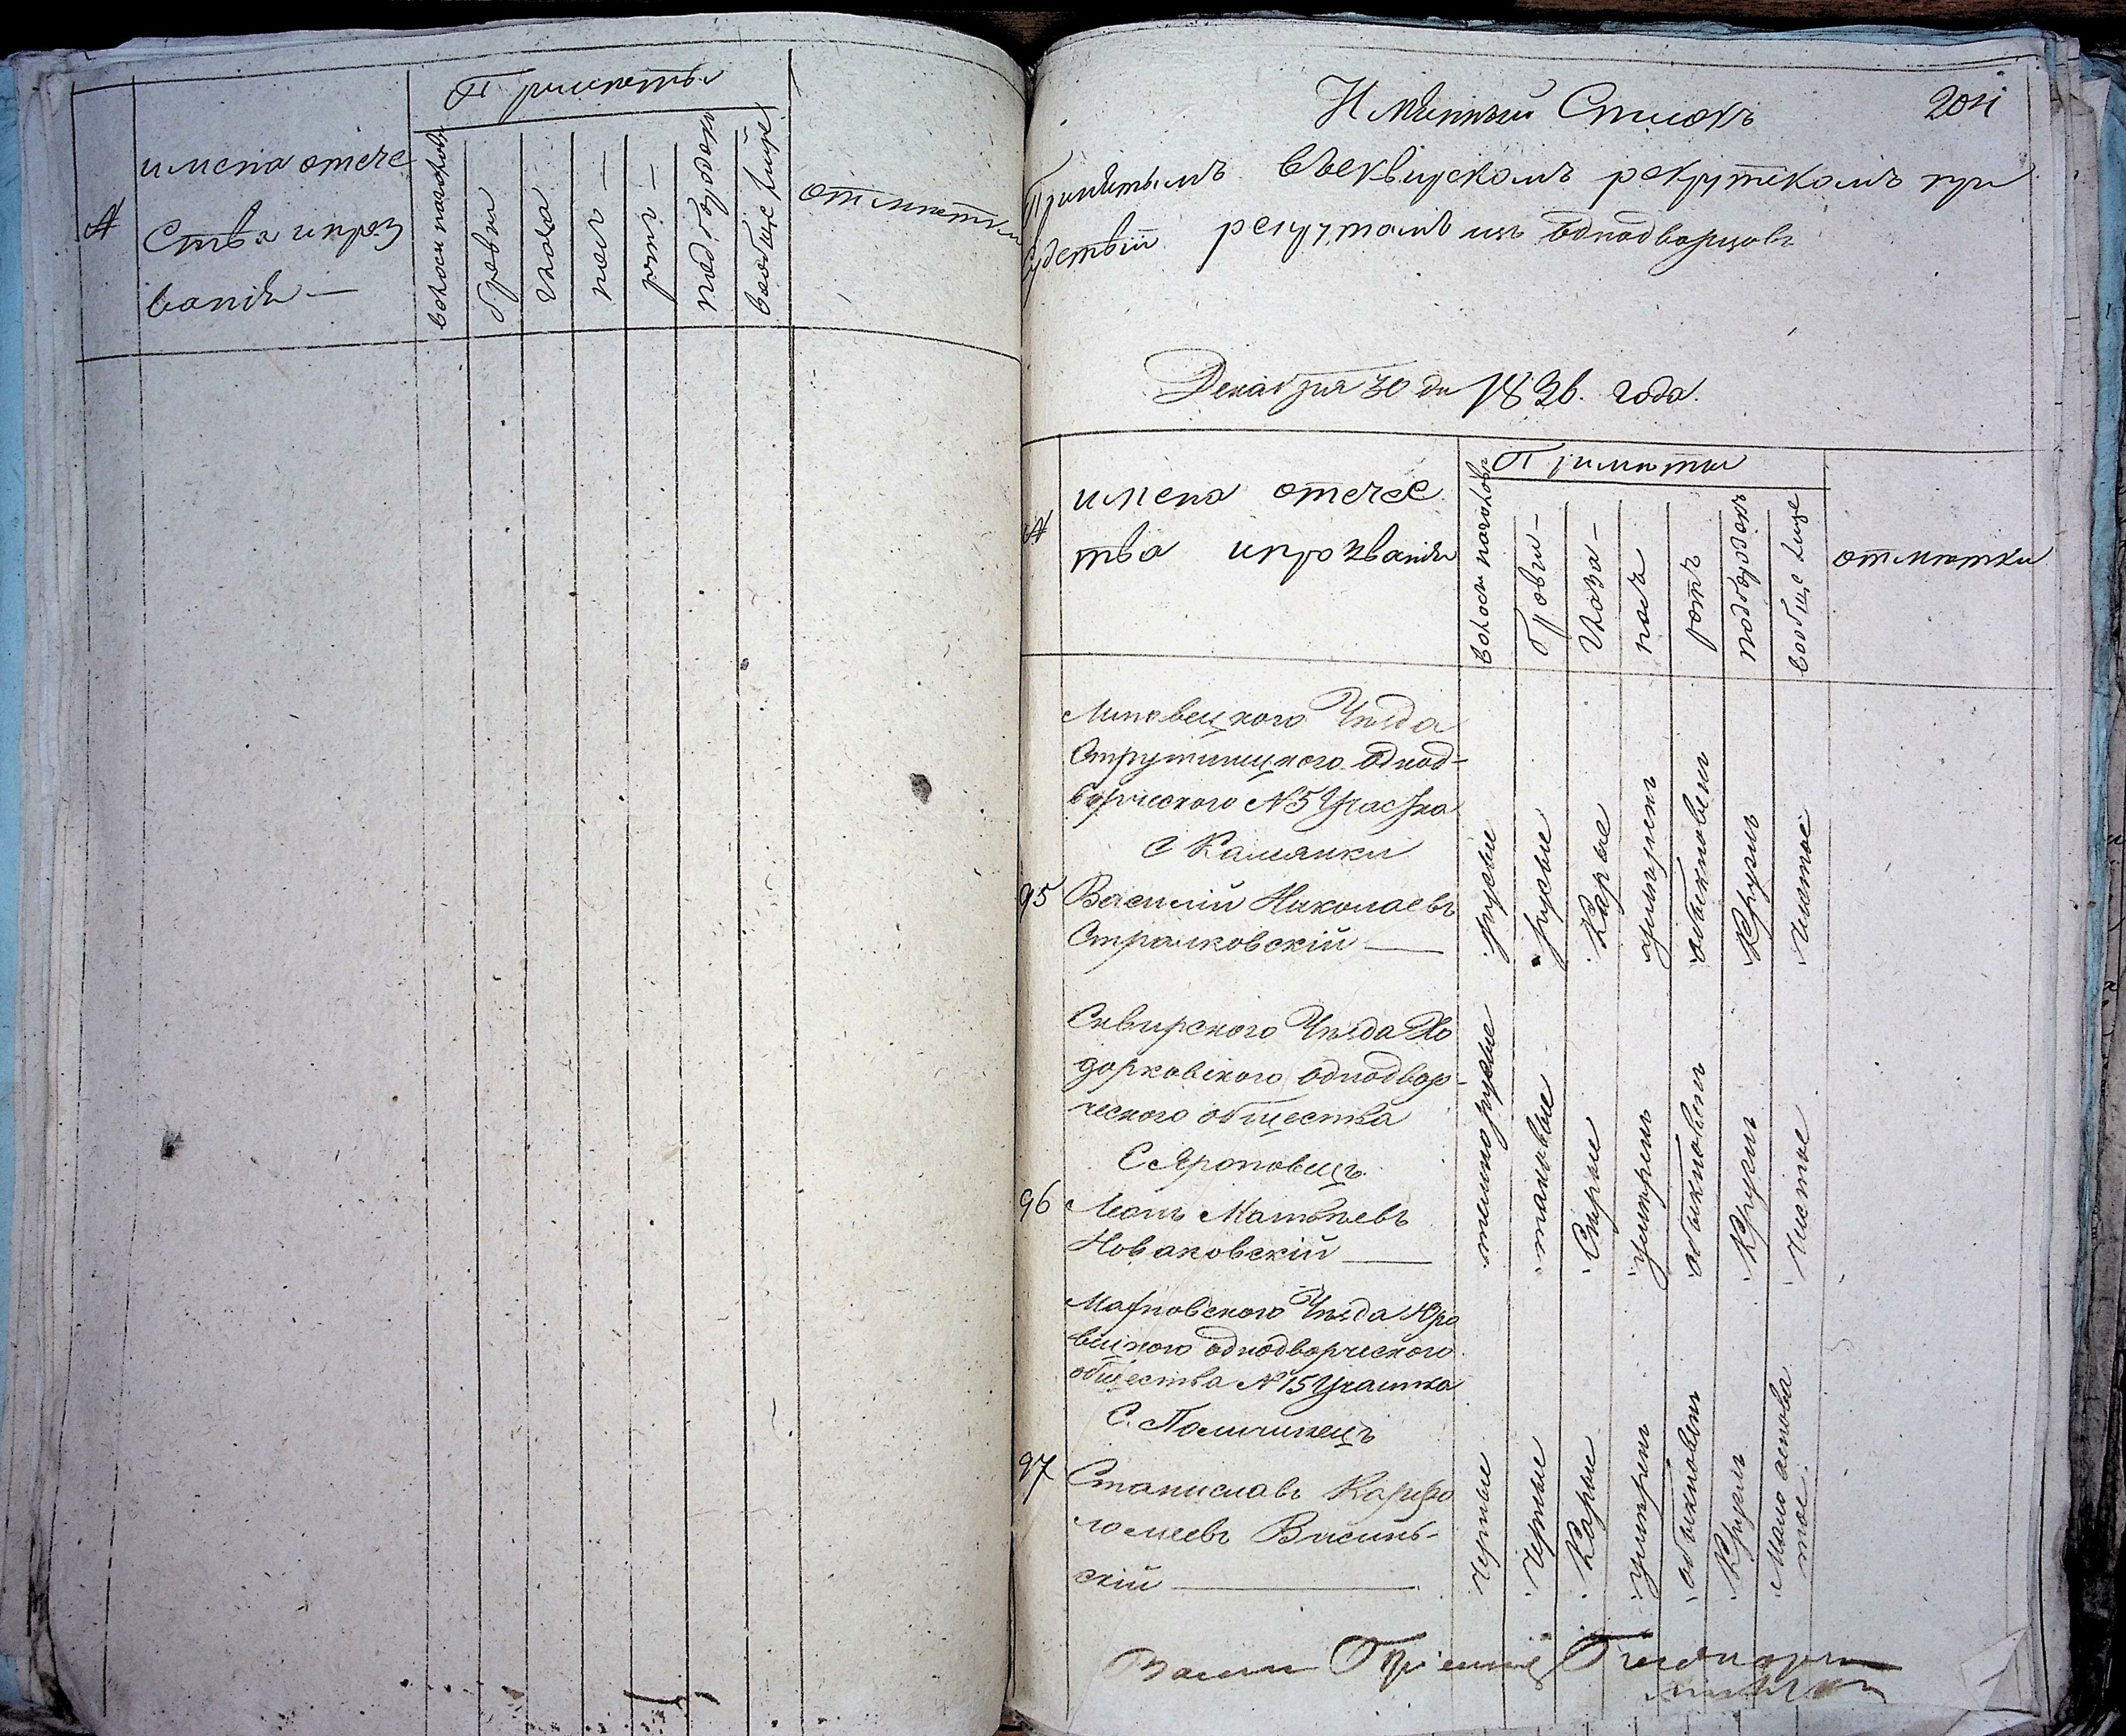 №
имена отече
ства и проз
ваніе —
Приметы
волоси на голове
брови
глаза
носъ —
ротъ —
подбородокъ
вообще лице
отметки
Именный Списокъ
204
Принятымъ въсквирскомъ рекрутскомъ при
судствіи рекрутамъ изъ однодворцовъ
Декабря 30 дн 1836. года.
№
имена отечес
тва и прозваніе
Приметы
волоси наголове
брови —
глаза —
носъ
ротъ
подбородокъ
вообще лице
отметки
Липовецкого Уезда
Струтинцкого однод-
ворческого №5 Участка
С Камянки
95 Василій Николаевъ
Стралковскій —
русые
русые
Карые
умеренъ
обыкновенъ
Круглъ
Чистое
Сквирского Уезда Хо
дорковского однодвор-
ческого общества
С Яроповецъ
96 Леонъ Матвѣевъ
Новаковскій —
темнорусые
таковые
Серые
умеренъ
обыкновенъ
Круглъ
Чистое
Махновского Уезда Про
вецкого однодворческого
общества №15 Участка
С. Поличинецъ
97 Станиславъ Карфо
ломеевъ Висинь-
скій —
Черные
Черные
Карые
умеренъ
обыкновенъ
Круглъ
Мало осповатое